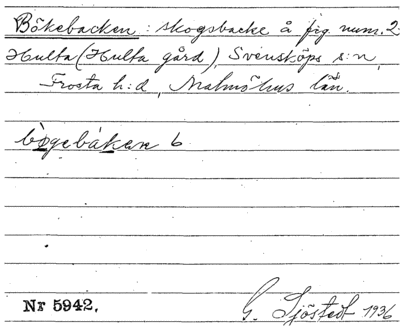 Bökebacken : skogsbacke å fig. num. 2
Hulta (Hulta gård), Svensköps s:n,
Frosta h:d, Malmöhus län.
bøgebáken b
Nr 5942.
G. Sjöstedt 1936